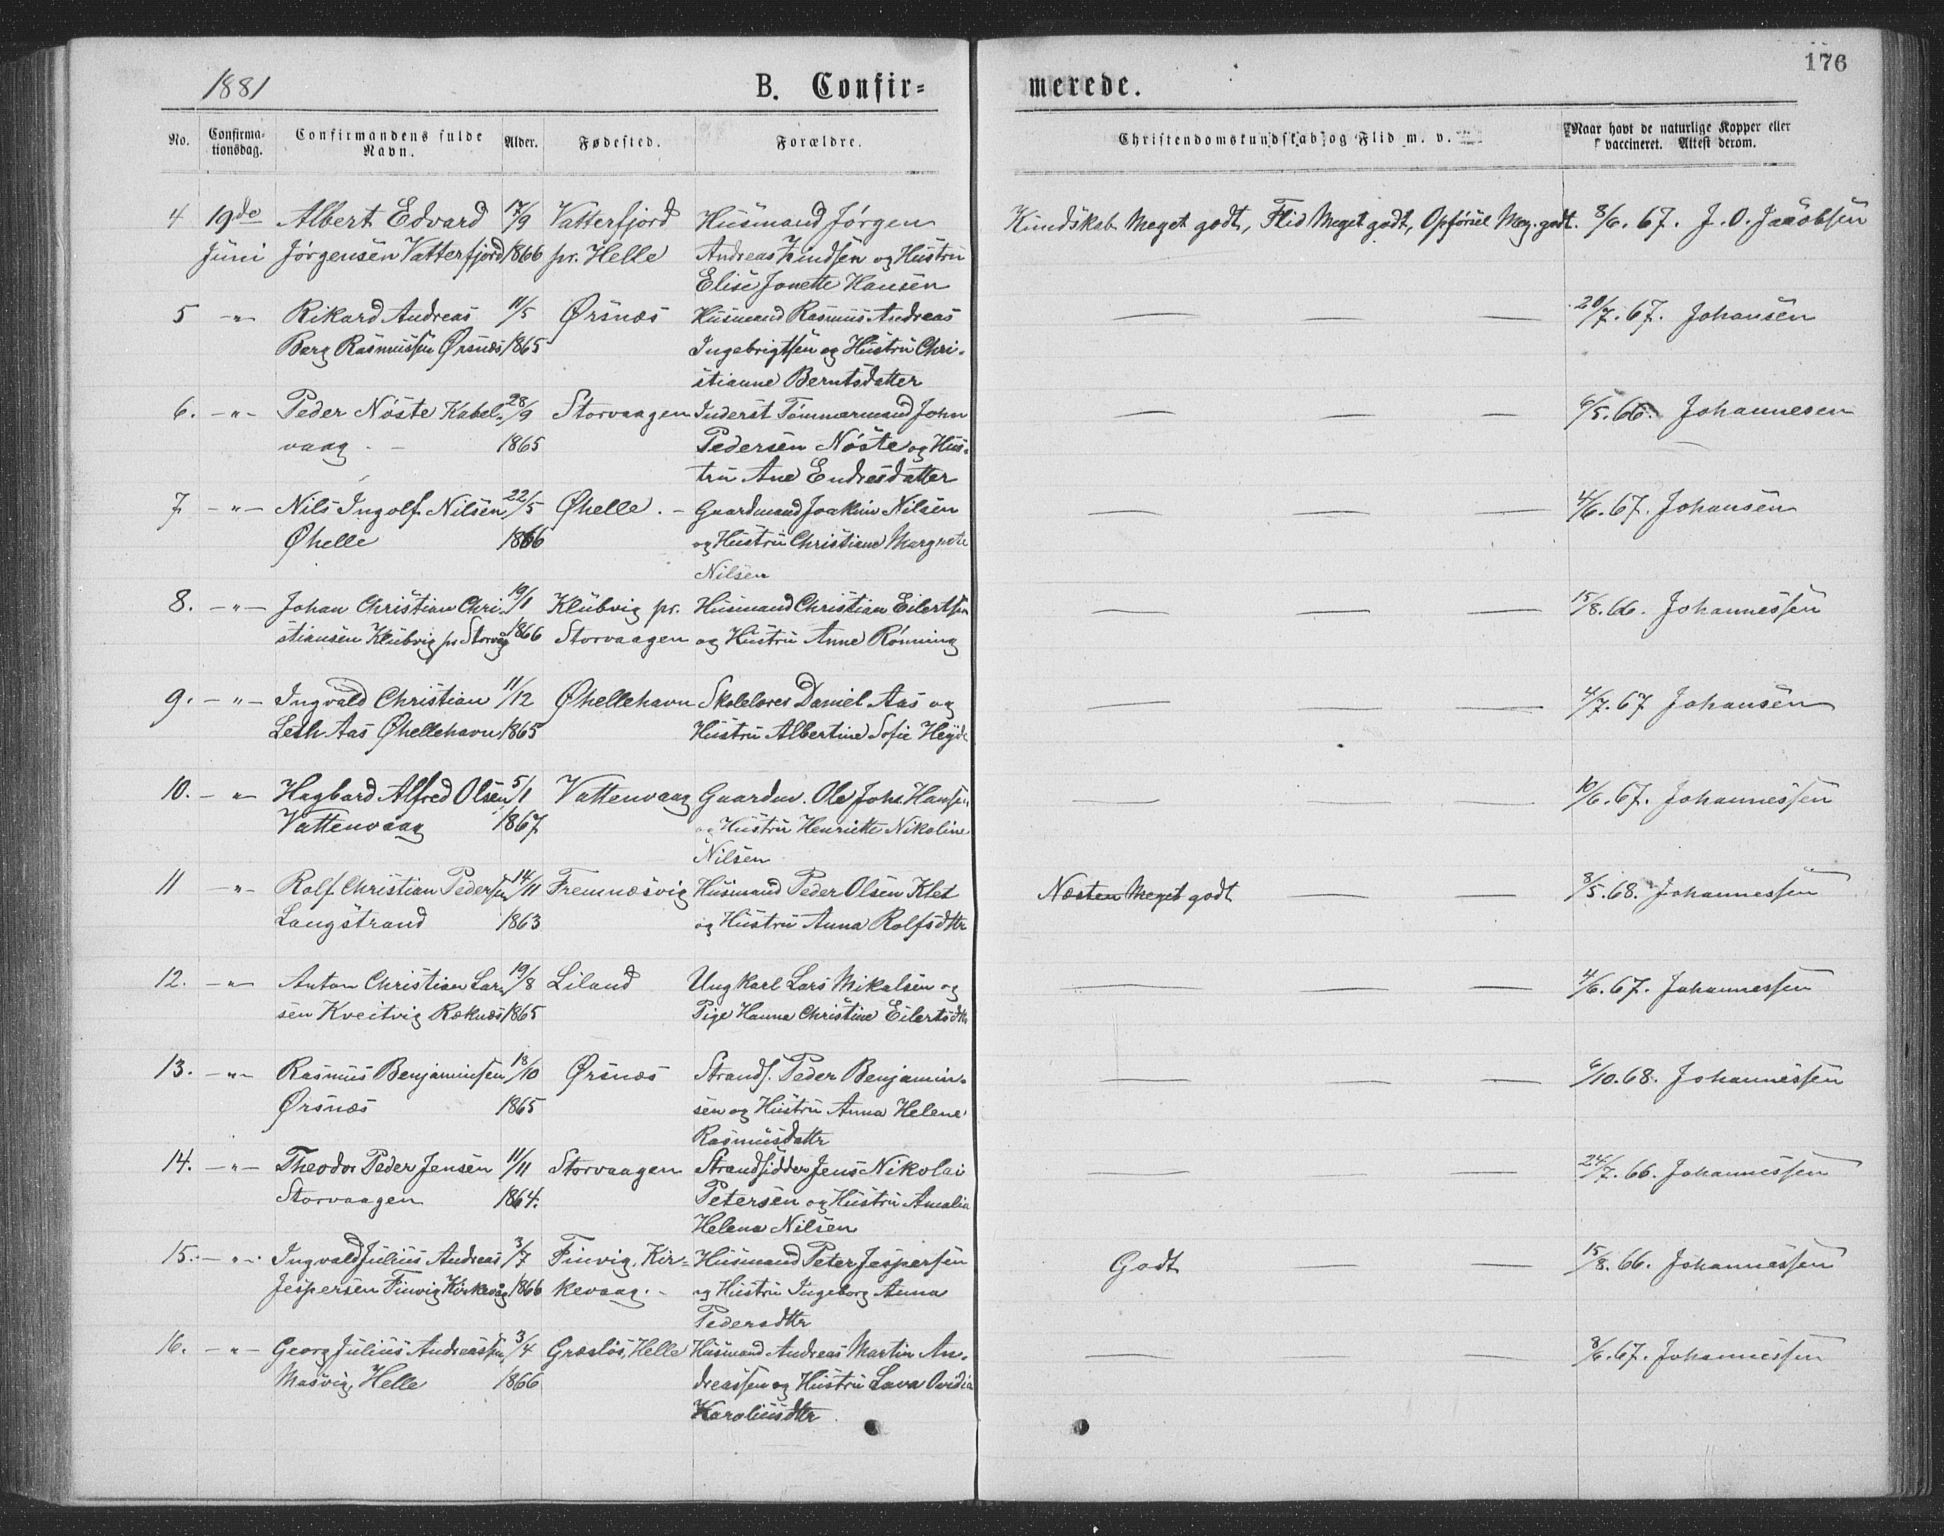 176
1881 B. Confir= merede.
No. Confirma- tionsdag. Confirmandens fulde Navn. Alder. Fødested. Forældre. Christendomskundskab og Flid m. v. Naar havt de naturlige Kopper eller vaccineret. Attest derom.
4 19de Albert Edvard 17/9 Vatterfjord Husmand Jørgen Kundskab Meget godt, Flid Meget godt, Opførsel Meg. godt. 8/6. 67. J. O. Jacobsen
Juni Jørgensen Vatterfjord 1866 pr. Helle Andreas og Hustru
Elise Jonette Hansen
5 -"- Rikard Andreas 11/5 Ørsnæs Husmand Rasmus Andreas — — — 20/7. 67. Johansen
Berg Rasmussen Ørsnæs 1865 Ingebrigtsen og Hustru Chri-
stianne Berntsdatter
6. -"- Peder Nöste Kabel- 28/9 Storvaagen Inderst Tømmermand John — — — 6/5. 66. Johannesen
vaag. 1865 Pedersen Nöste og Hus-
tru Ane Endresdatter
7 -"- Nils Ingolf Nilsen 22/5 Øhelle. - Gaardmand Joakim Nilsen — — — 4/6. 67. Johansen
Øhelle 1866 og Hustru Christiane Margrete
Nilsen
8. -"- Johan Christian Chri- 19/1 Klubvig pr. Husmand Christian Eilertsen — — — 15/8. 66. Johannessen
stiansen Klubvig pr Storvåg 1866 Storvaagen og Hustru Anne Rönning
9. -"- Ingvald Christian 11/12 Øhellehavn Skolelærer Daniel Aas og — — — 4/7. 67 Johansen
Leth Aas Øhellehavn 1865 Hustru Albertine Sofie
10. -"- Hagbard Alfred Olsen 5/1 Vattenvaag Gaardm. Ole Johs. Hansen — — — 10/6. 67. Johannessen
Vattenvaag 1867 og Hustru Henriette Nikoline
Nilsen
11 -"- Rolf Christian Pedersen 14/11 Fremnæsvig Husmand Peder Olsen Klet Næsten Meget godt — — 8/5. 68. Johannessen
Langstrand 1863 og Hustru Anna Rolfsdtr
12. -"- Anton Christian Lar- 19/8 Liland Ungkarl Lars Mikalsen og — — — 4/6. 67. Johannessen
sen Kveitvig Røknæs 1865 Pige Hanna Christine Eilertsdtr
13. -"- Rasmus Benjaminsen 18/10 Ørsnæs Strands. Peder Benjamin- — — — 6/10. 68. Johannessen
Ørsnæs 1865 sen og Hustru Anna Helene
Rasmusdatr
14. -"- Theodor Peder Jensen 11/11 Storvaagen Strandsidder Jens Nikolai — — — 24/7. 66. Johannessen
Storvaagen 1864. Petersen og Hustru Amalia
Helena Nilsen
15. -"- Ingvald Julius Andreas 3/7 Finvig, Kir- Husmand Peter Jespersen Godt — — 15/8. 66. Johannessen
Jespersen Finvig Kirkevåg 1866 kevaag. - og Hustru Ingeborg Anna
Pedersdtr
16. -"- Georg Julius Andreassen 3/4 Græslös, Helle Husmand Andreas Martin An- — — — 8/6. 67. Johannessen
Masvig, Helle 1866 dreassen og Hustru Lava Ovidia
Karoliusdtr